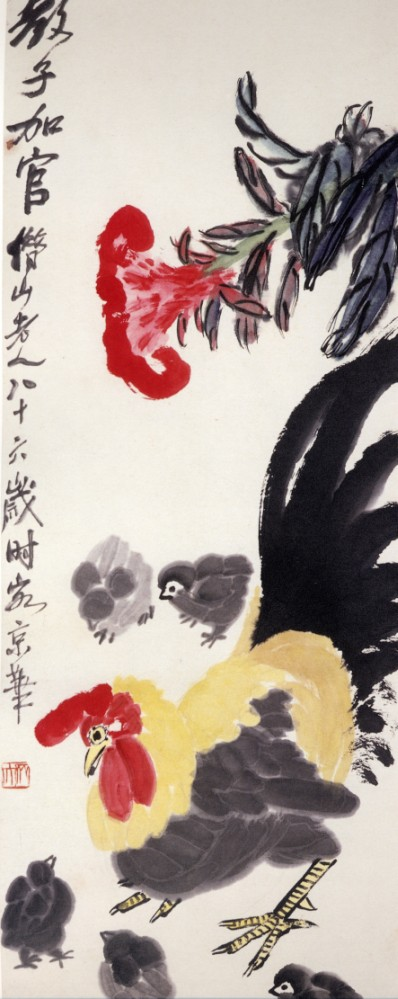 教子加官借山老人八十六歲时客京華